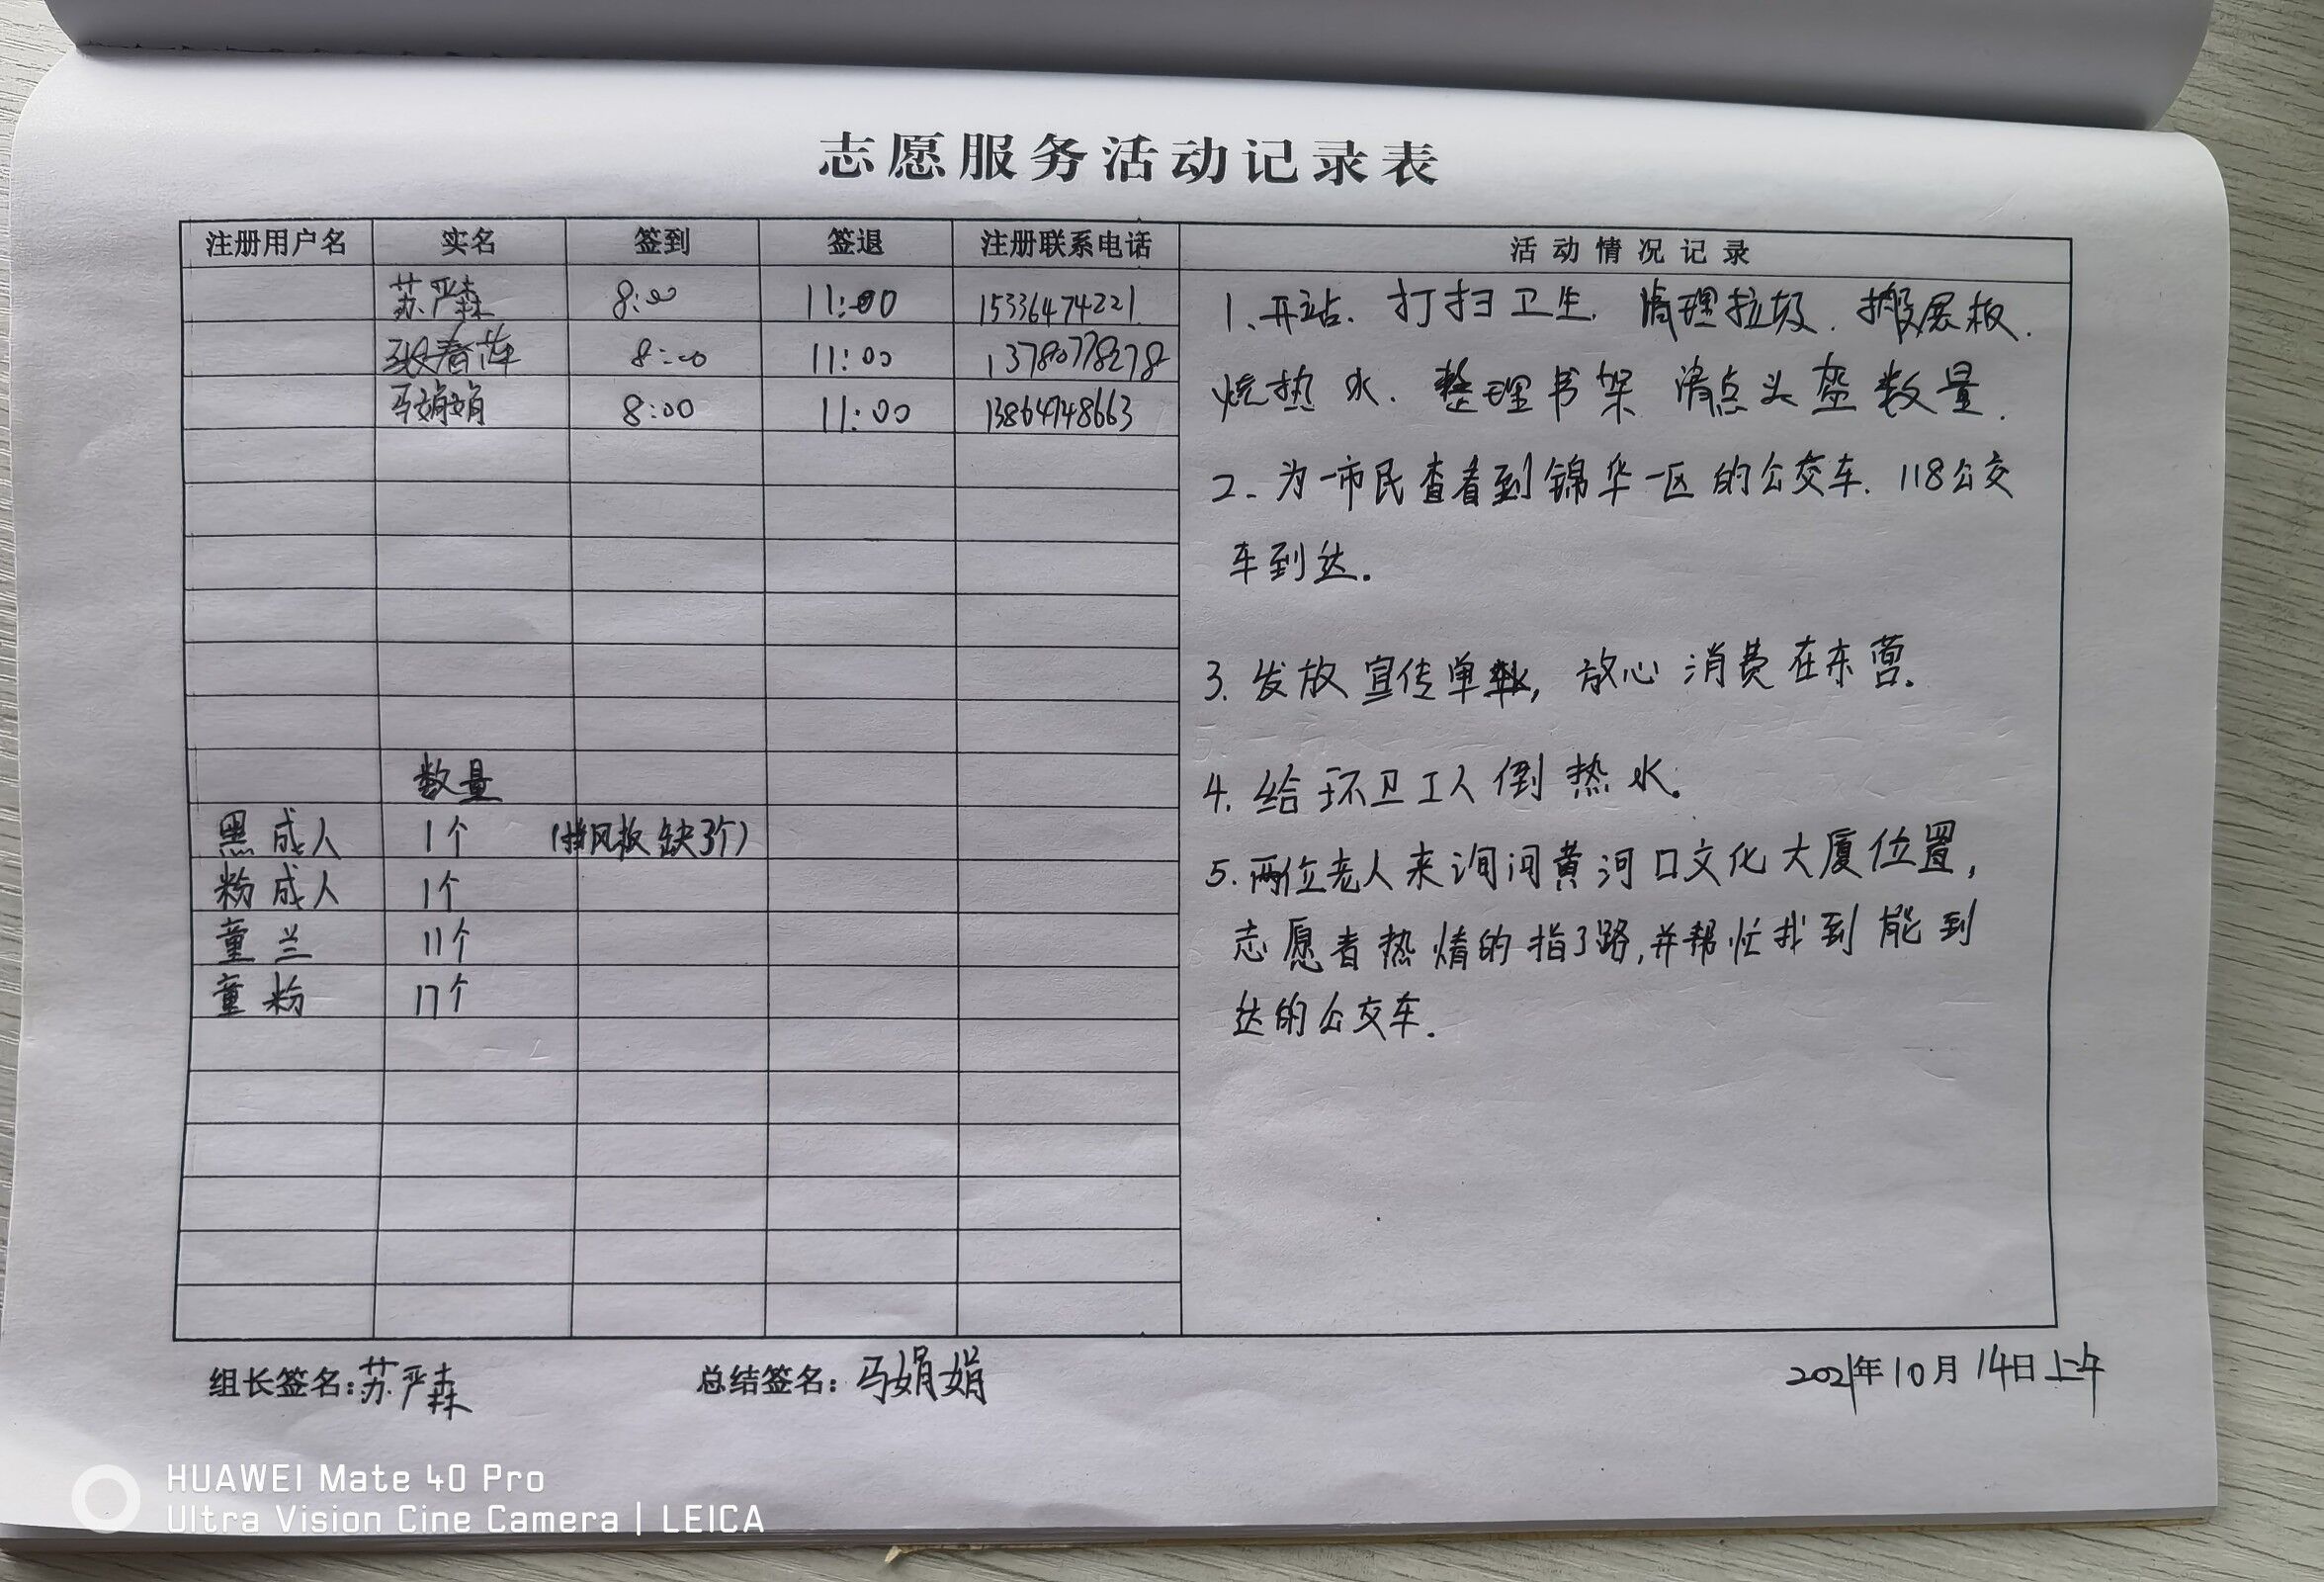 志愿服务活动记录表
注册用户名 实名 签到 签退 注册联系电话 活动情况记录
苏严森 8:00 11:00 15336474221
张春萍 8:00 11:00 13780778278
马娟娟 8:00 11:00 13864748663
数量
黑成人 1个 (挡风板缺3个)
粉成人 1个
童兰 11个
童粉 17个
1、开站. 打扫卫生. 清理垃圾. 搬展板.
烧热水. 整理书架 清点头盔数量.
2、为一市民查看到锦华一区的公交车. 118公交
车到达.
3. 发放宣传单, 放心消费在东营.
4. 给环卫工人倒热水.
5. 两位老人来询问黄河口文化大厦位置,
志愿者热情的指了路,并帮忙找到能到
达的公交车.
组长签名:苏严森 总结签名:马娟娟 2021年10月14日上午
HUAWEI Mate 40 Pro
Ultra Vision Cine Camera | LEICA